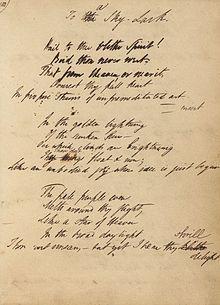 To a Sky-Lark
Hail to thee blithe Spirit!
Bird thou never wert
That from Heaven, or near it,
Pourest thy full heart
In profuse strains of unpremeditated art
In the golden lightning
Of the sunken Sun
O'er which clouds are brightning
float & run,
Like an unbodied joy whose race is just begun
The pale purple even
Melts around thy flight,
Like a star of Heaven
In the broad daylight
Thou art unseen, — but yet I hear thy shrill
delight